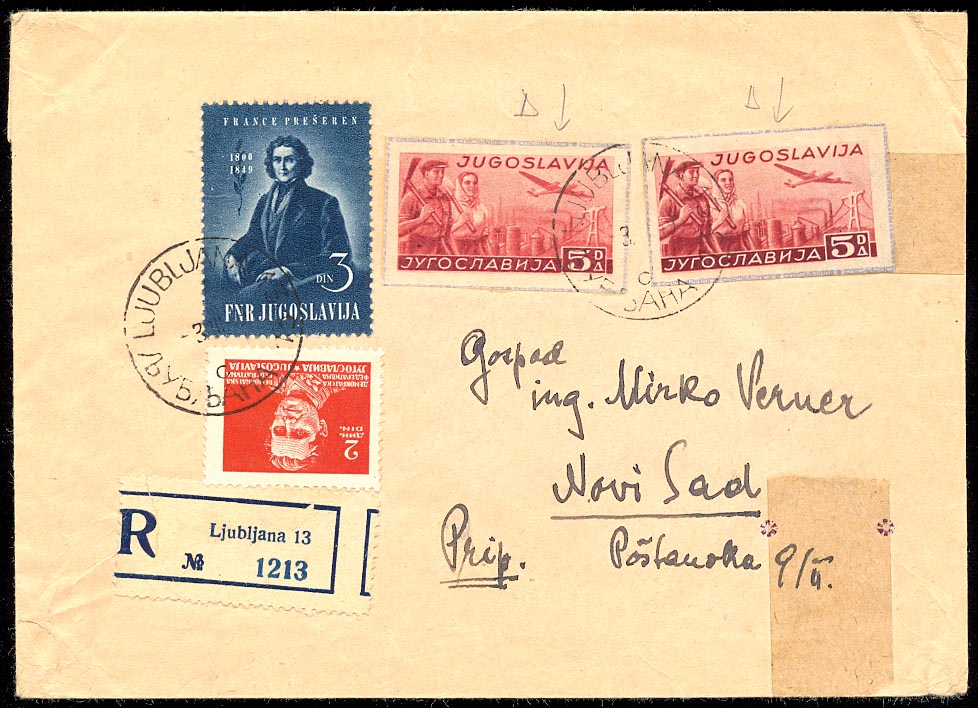 D D
FRANCE PREŠEREN
1800
1849
DIN 3
FNR JUGOSLAVIJA
JUGOSLAVIJA
5 D
ЈУГОСЛАВИЈА
JUGOSLAVIJA
5 D
ЈУГОСЛАВИЈА
LJUBLJANA
ЉУБЉАНА
LJUBLJANA
ЉАНА
ДЕМОКРАТСКА
ФЕДЕРАТИВНА
ЈУГОСЛАВИЈА * JUGOSLAVIJA
2 ДИН.
DIN.
Gospod
ing. Mirko Verner
Novi Sad
Prip. Poštanska 9/II.
R Ljubljana 13
№ 1213